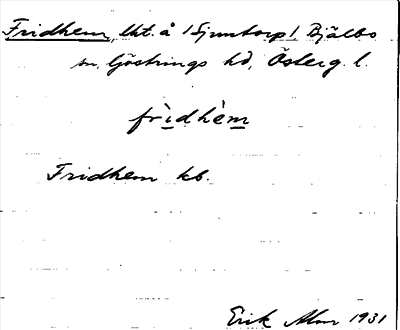 Fridhem, lht. å /Sjuntorp/, Bjälbo
sn, Göstrings hd, Österg. l.
frìdhèm
Fridhem kb.
Erik Alm 1931